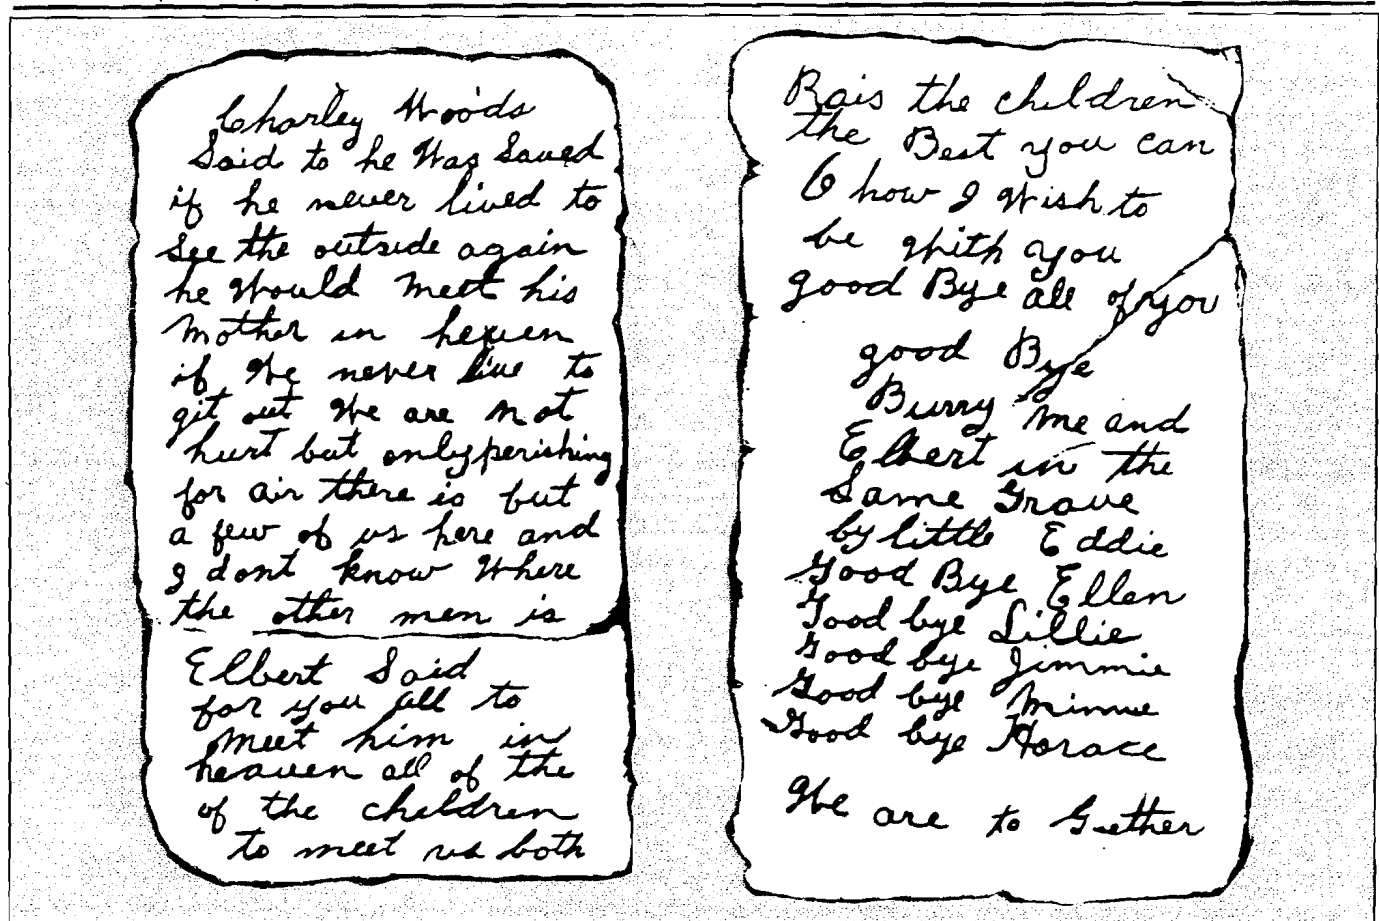 Charley Woods
Said to he Was Saved
if he never lived to
See the outside again
he Would meet his
Mother in heaven
if We never live to
git out We are not
hurt but only perishing
for air there is but
a few of us here and
I dont know Where
the other men is
Elbert Said
for you all to
meet him in
heaven all of the
of the children
to meet us both
Rais the children
the Best you can
O how I Wish to
be With you
good Bye all of you
good Bye
Burry me and
Elbert in the
Same Grave
by little Eddie
Good Bye Ellen
Good bye Lillie
Good bye Jimmie
Good bye Minnie
Good bye Horace
We are to Gether